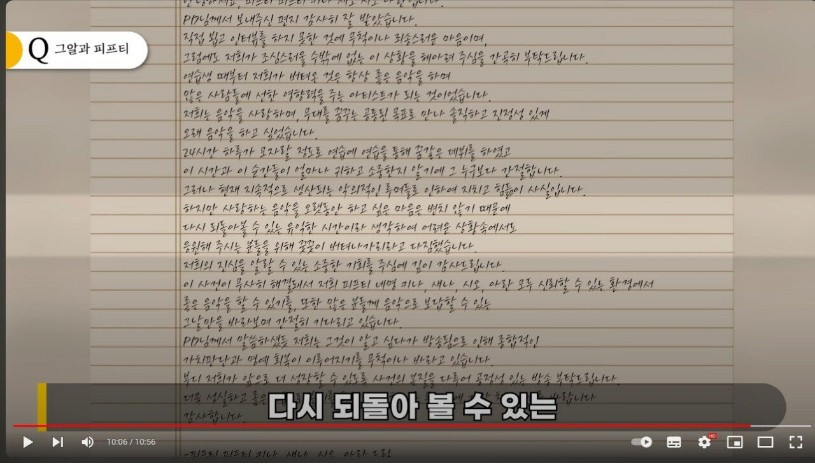 PD님께서 보내주신 편지 감사히 잘 받았습니다.
Q 그알과 피프티
직접 뵙고 인터뷰를 하지 못한 것에 무척이나 죄송스러운 마음이며,
그럼에도 저희가 조심스러울 수밖에 없는 이 상황을 헤아려 주심을 간곡히 부탁드립니다.
연습생 때부터 저희가 버텨온 것은 항상 좋은 음악을 하며
많은 사람들에 선한 영향력을 주는 아티스트가 되는 것이었습니다.
저희는 음악을 사랑하며, 무대를 꿈꾸는 공통된 목표로 만나 솔직하고 진정성 있게
오래 음악을 하고 싶었습니다.
24시간 하루가 모자랄 정도로 연습에 연습을 통해 꿈같은 데뷔를 하였고
이 시간과 이 순간들이 얼마나 귀하고 소중한지 알기에 그 누구보다 간절합니다.
그러나 현재 지속적으로 생산되는 악의적인 루머들로 인하여 지치고 힘듦이 사실입니다.
하지만 사랑하는 음악을 오랫동안 하고 싶은 마음은 변치 않기 때문에
다시 되돌아볼 수 있는 유익한 시간이라 생각하여 어려운 상황속에서도
응원해 주시는 분들을 위해 꿋꿋이 버텨나가리라고 다짐했습니다.
저희의 진심을 알릴 수 있는 소중한 기회를 주심에 깊이 감사드립니다.
이 사건이 무사히 해결돼서 저희 피프티 네명 키나, 새나, 시오, 아란 모두 신뢰할 수 있는 환경에서
좋은 음악을 할 수 있기를, 또한 많은 분들께 음악으로 보답할 수 있는
그날만을 바라보며 간절히 기다리고 있습니다.
PD님께서 말씀하셨듯 저희는 그것이 알고 싶다가 방송됨으로 인해 통합적인
가치판단과 명예 회복이 이루어지기를 무척이나 바라고 있습니다.
부디 저희가 앞으로 더 성장할 수 있도록 사건의 본질을 다루어 공정성 있는 방송 부탁드립니다.
더욱 성실하고 좋은
감사합니다.
다시 되돌아 볼 수 있는
10:06 / 10:56
HD
-피프티 피프티 키나, 새나, 시오, 아란 드림